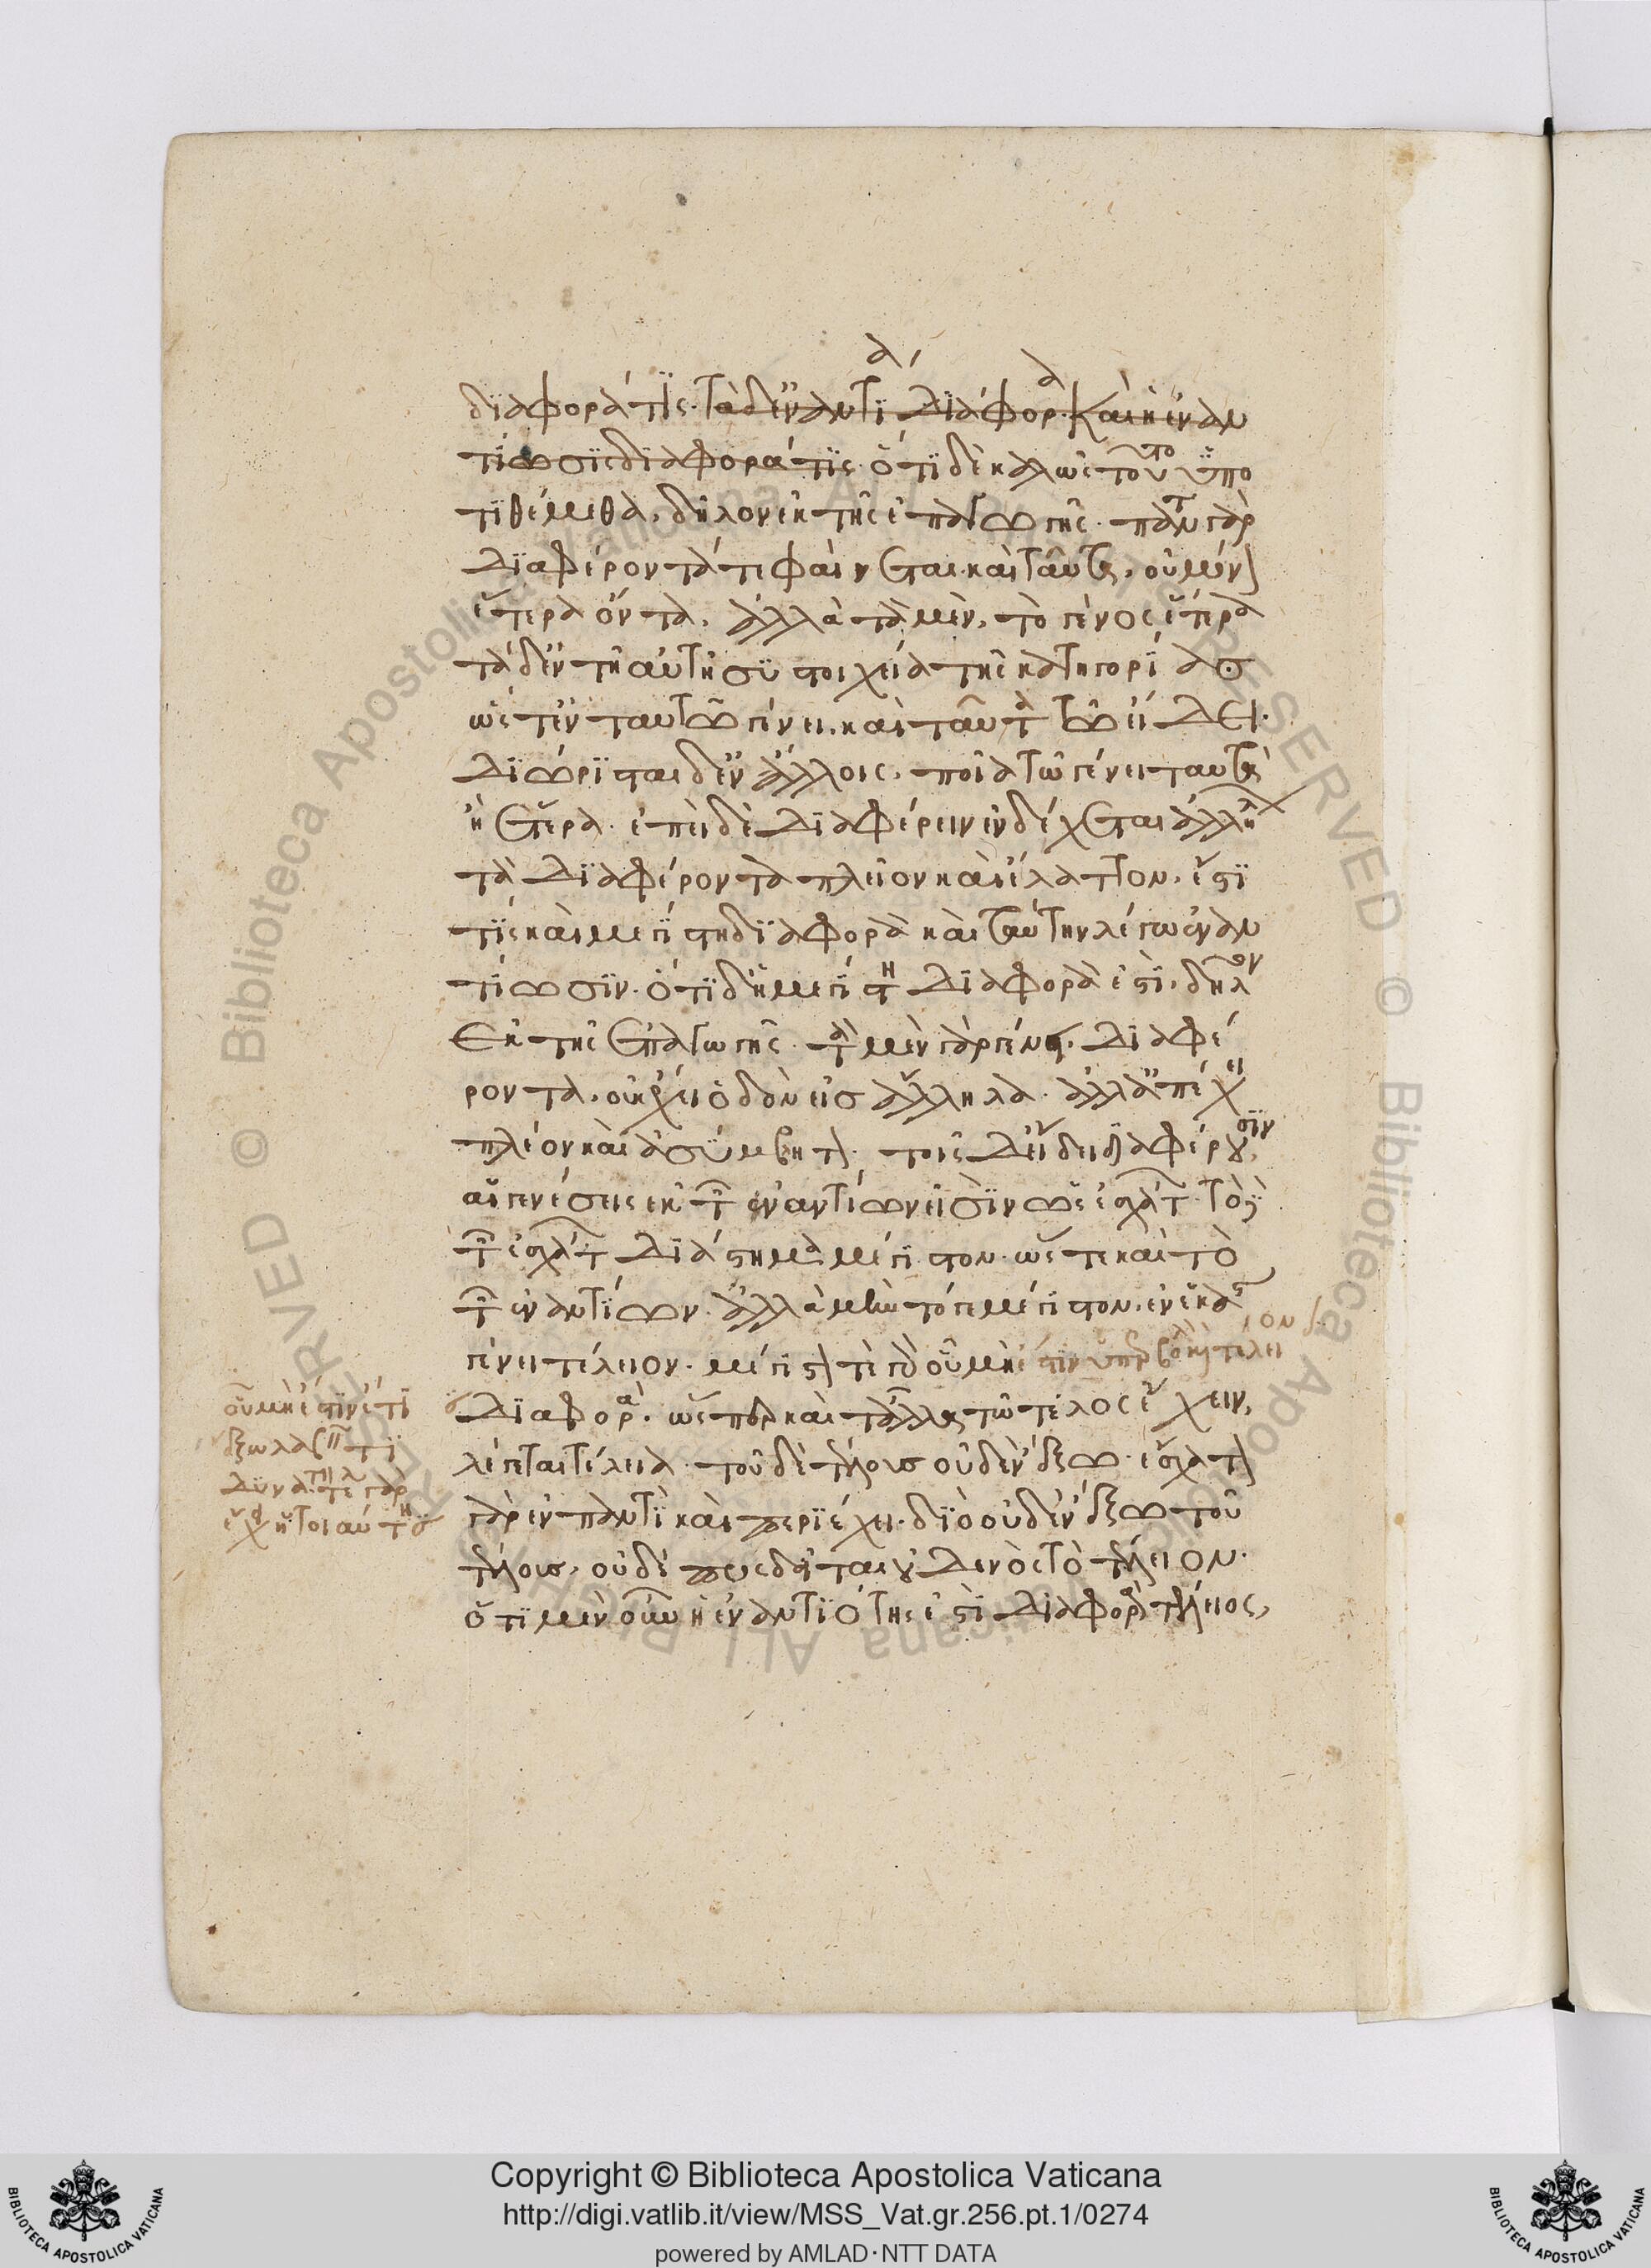 διαφορά τις. τὰ δ' ἐναντία διάφορα καὶ ἡ ἐναν
τίωσις διαφορά τις. ὅτι δὲ καλῶς τοῦτο ὑπο
τιθέμεθα, δῆλον ἐκ τῆς ἐπαγωγῆς. πάντα γὰρ
διαφέροντά τε φαίνεται καὶ ταῦτα, οὐ μόνον
ἕτερα ὄντα, ἀλλὰ τὰ μὲν, τὸ γένος ἕτερα
τὰ δ' ἐν τῇ αὐτῇ συστοιχείᾳ τῆς κατηγορίας
ὥστ' ἐν ταυτῷ γένει. καὶ ταυτὰ τῷ εἴδει.
διώρισται δ' ἐν ἄλλοις, ποῖα τῷ γένει ταυτὰ
ἢ ἕτερα. ἐπεὶ δὲ διαφέρειν ἐνδέχεται ἀλλήλων
τὰ διαφέροντα πλεῖον καὶ ἔλαττον, ἔστι
τις καὶ μεγίστη διαφορὰ καὶ ταύτην λέγω ἐναν
τίωσιν. ὅτι δ' ἡ μεγίστη διαφορὰ ἐστὶ, δῆλον
ἐκ τῆς ἐπαγωγῆς. τὰ μὲν γὰρ γένει διαφέ
ροντα, οὐκ ἔχει ὁδὸν εἰς ἄλληλα. ἀλλ' ἀπέχει
πλέον καὶ ἀσύμβλητα. τοῖς δ' εἴδει διαφέρουσιν
αἱ γενέσεις ἐκ τῶν ἐναντίων εἰσὶν ὡς ἐσχάτων. τὸ δὲ
τῶν ἐσχάτων διάστημα μέγιστον. ὥστε καὶ τὸ
τῶν ἐναντίων. ἀλλὰ μὴν τό γε μέγιστον, ἐν ἑκάστῳ
γένει τέλειον. μέγιστόν τε γὰρ οὗ μὴ ἔστιν ὑπερβολὴ καὶ τέλειον
διαφορά. ὥσπερ καὶ τἆλλα τῷ τέλος ἔχειν,
λέγεται τέλεια. τοῦ δὲ τέλους οὐδὲν ἔξω. ἔσχατον
γὰρ ἐν παντὶ καὶ περιέχει. διὸ οὐδὲν ἔξω τοῦ
τέλους, οὐδὲ προσδεῖται οὐδενὸς τὸ τέλειον.
ὅτι μὲν οὖν ἡ ἐναντιότης ἐστὶ διαφορὰ τέλειος,
οὗ μὴ ἔστιν ἔτι
ἔξω λαβεῖν τι